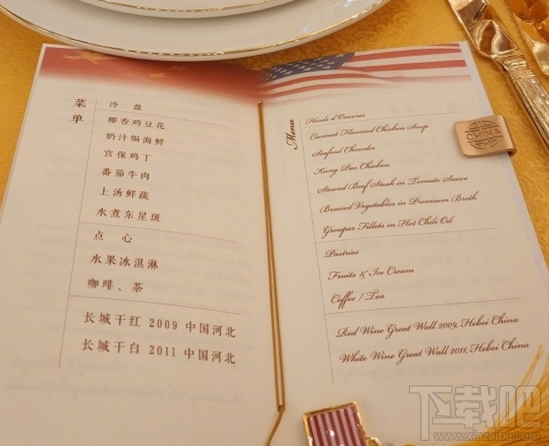 菜单
冷盘
椰香鸡豆花
奶汁焗海鲜
宫保鸡丁
番茄牛肉
上汤鲜蔬
水煮东星斑
点心
水果冰淇淋
咖啡、茶
长城干红 2009 中国河北
长城干白 2011 中国河北
Menu
Hords d'Oeuvres
Coconut Flavored Chicken Soup
Seafood Chowder
Kung Pao Chicken
Stewed Beef Steak in Tomato Sauce
Braised Vegetables in Premium Broth
Grouper Fillets in Hot Chili Oil
Pastries
Fruits & Ice Cream
Coffee / Tea
Red Wine Great Wall 2009, Hebei China
White Wine Great Wall 2011, Hebei China
CHINA
下载吧
www.xiazaiba.com